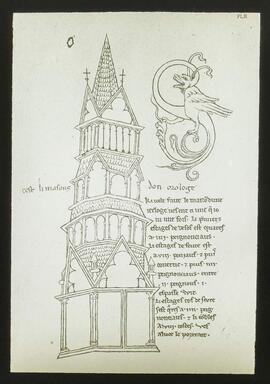 PL.II
cest li masons don orologe
Ki velt faire le maizon dune
ierloge ves ent ci une q̃ io
vi une fois. li p̃miers
estages de desos est quares
a .iiii. peignonciaus.
li estages deseure est
a .viii. peniaus. ⁊ puis
covertic. ⁊ puis .iiii.
peignonciaus. entre
.ii. peignons .i.
espasse wit.
li estages tos deseure
sest q̃res a .iiii. peig
nonciaus. ⁊ li combes
a .viii. costes. ves
aluec le portrait.